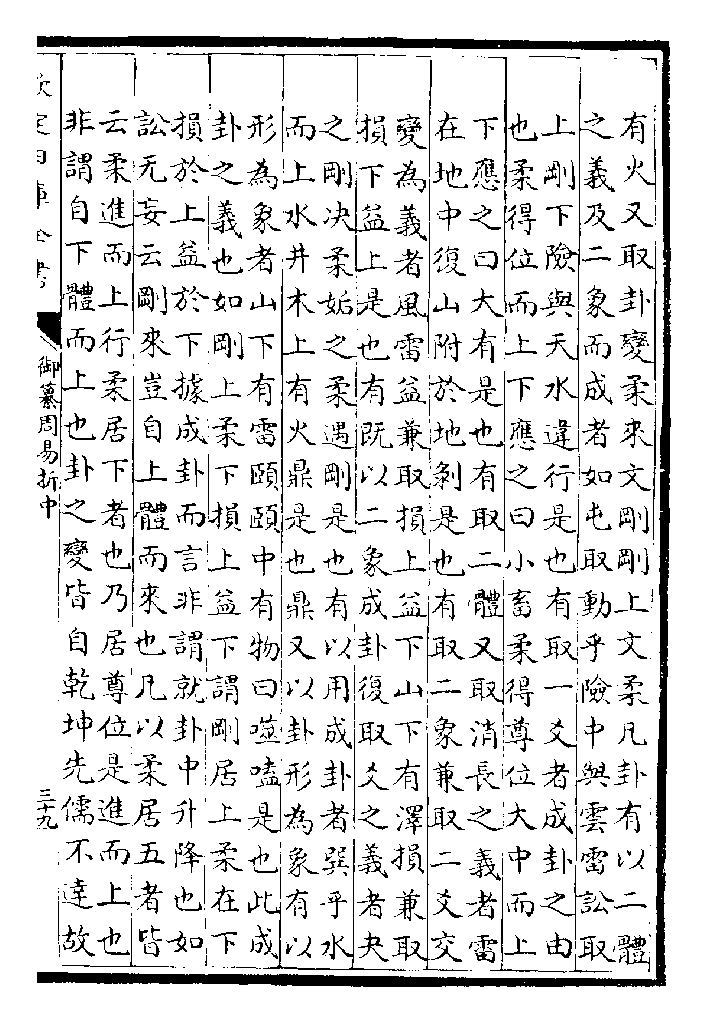 有火又取卦變柔來文剛剛上文柔凡卦有以二體
之義及二象而成者如屯取動乎險中與雲雷訟取
上剛下險與天水違行是也有取一爻者成卦之由
也柔得位而上下應之曰小畜柔得尊位大中而上
下應之曰大有是也有取二體又取消長之義者雷
在地中復山附於地剝是也有取二象兼取二爻交
變為義者風雷益兼取損上益下山下有澤損兼取
損下益上是也有既以二象成卦復取爻之義者夬
之剛决柔姤之柔遇剛是也有以用成卦者巽乎水
而上水井木上有火鼎是也鼎又以卦形為象有以
形為象者山下有雷頤頤中有物曰噬嗑是也此成
卦之義也如剛上柔下損上益下謂剛居上柔在下
損於上益於下據成卦而言非謂就卦中升降也如
訟无妄云剛來豈自上體而來也凡以柔居五者皆
云柔進而上行柔居下者也乃居尊位是進而上也
非謂自下體而上也卦之變皆自乾坤先儒不達故
欽定四庫全書
御纂周易折中
三十九